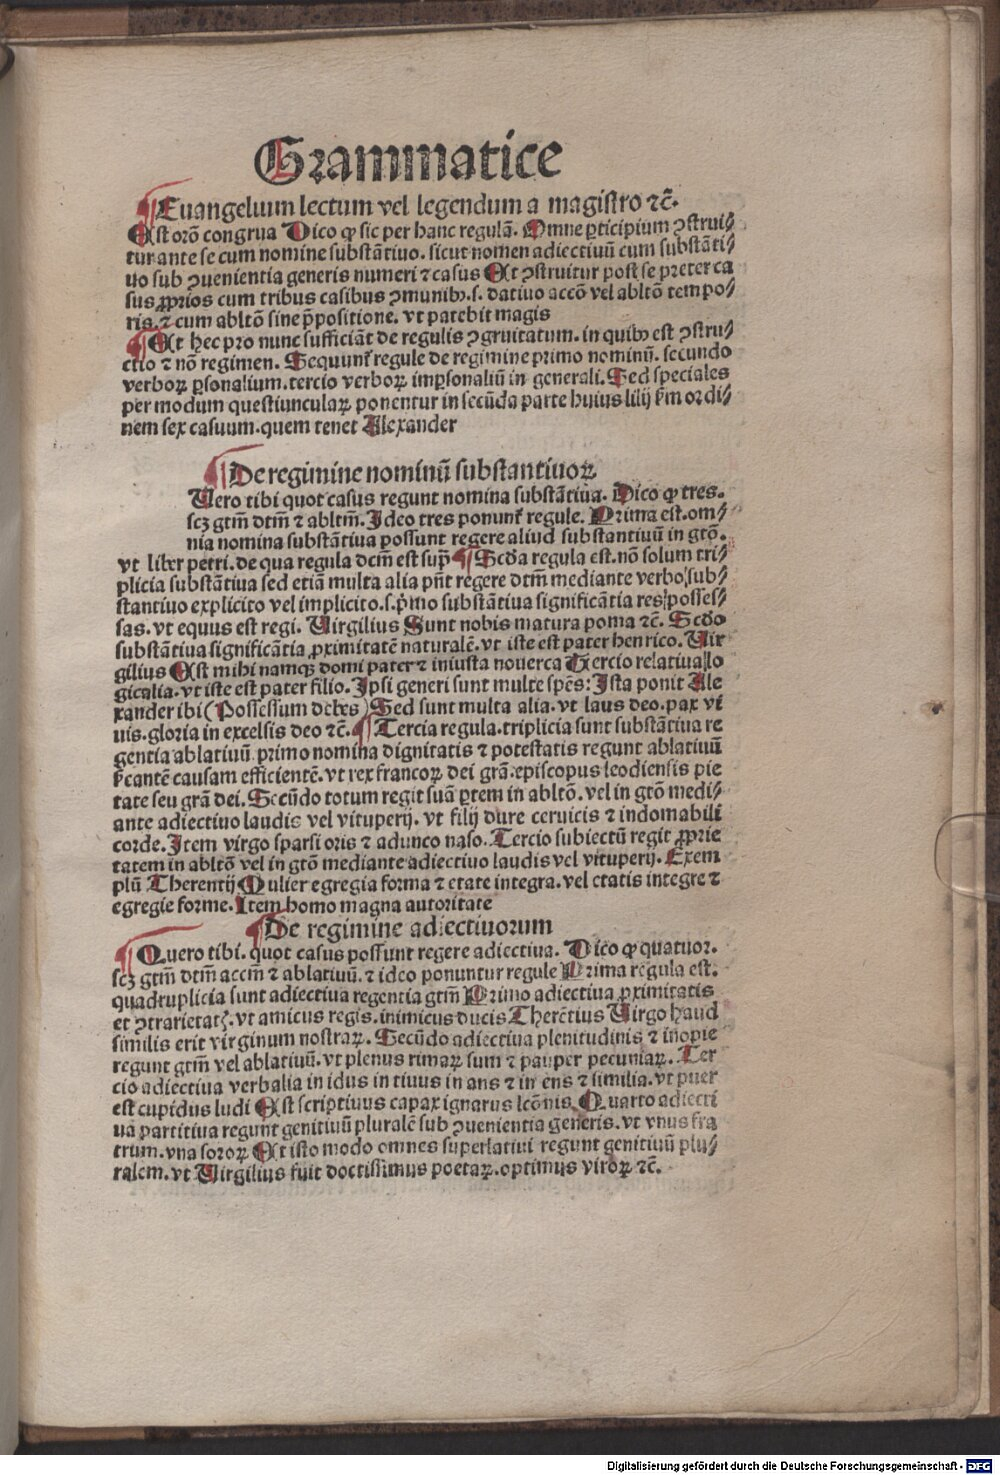 Grammatice
¶Euangelium lectum vel legendum a magistro ⁊c̄.
Est orō congrua Dico ꝙ sic per hanc regulā. Omne ꝑticipium ꝯstrui⸗
tur ante se cum nomine substātiuo. sicut nomen adiectiuū cum substāti⸗
uo sub ꝯuenientia generis numeri ⁊ casus Et ꝯstruitur post se preter ca
sus ꝓprios cum tribus casibus ꝯmunibꝰ.s. datiuo accō vel abltō tempo⸗
ris. ⁊ cum abltō sine p̄positione. vt patebit magis
¶Et hec pro nunc sufficiāt de regulis ꝯgruitatum. in quibꝰ est ꝯstru⸗
ctio ⁊ nō regimen. Sequunt᷑ regule de regimine primo nominū. secundo
verboꝝ ꝑsonalium. tercio verboꝝ imꝑsonaliū in generali. Sed speciales
per modum questiunculaꝝ ponentur in secūda parte huius libij k̄m ordi⸗
nem sex casuum. quem tenet Alexander
¶De regimine nominū substantiuoꝝ
Uero tibi quot casus regunt nomina substātiua. Dico ꝙ tres.
scꝫ gtm̄ dtm̄ ⁊ abltm̄. Ideo tres ponunt᷑ regule. Prima est. om⸗
nia nomina substātiua possunt regere aliud substantiuū in gtō.
vt liber petri. de qua regula dcm̄ est sup̄ ¶Scd̄a regula est. nō solum tri⸗
plicia substātiua sed etiā multa alia pn̄t regere dtm̄ mediante verbo sub⸗
stantiuo explicito vel implicito.s. p̄mo substātiua significātia res posses⸗
sas. vt equus est regi. Uirgilius Sunt nobis matura poma ⁊c̄. Scd̄o
substātiua significātia ꝓximitatē naturalē. vt iste est pater henrico. Uir
gilius Est mihi namqꝫ domi pater ⁊ iniusta nouerca Tercio relatiua lo
gicalia. vt iste est pater filio. Ipsi generi sunt multe spēs: Ista ponit Ale
xander ibi (Possessum debes) Sed sunt multa alia. vt laus deo. pax vi
uis. gloria in excelsis deo ⁊c̄. ¶Tercia regula. triplicia sunt substātiua re
gentia ablatiuū. primo nomina dignitatis ⁊ potestatis regunt ablatiuū
k̄cantē causam efficientē. vt rex francoꝝ dei grā. episcopus leodiensis pie
tate seu grā dei. Secūdo totum regit suā ꝑtem in abltō. vel in gtō medi⸗
ante adiectiuo laudis vel vituperij. vt filij dure ceruicis ⁊ indomabili
corde. Item virgo sparsi oris ⁊ adunco naso. Tercio subiectū regit ꝓprie
tatem in abltō vel in gtō mediante adiectiuo laudis vel vituperij. Exem
plū Therentij Mulier egregia forma ⁊ etate integra. vel etatis integre ⁊
egregie forme. Item homo magna autoritate
¶De regimine adiectiuorum
¶Quero tibi. quot casus possunt regere adiectiua. Dico ꝙ quatuor.
scꝫ gtm̄ dtm̄ accm̄ ⁊ ablatiuū. ⁊ ideo ponuntur regule Prima regula est.
quadruplicia sunt adiectiua regentia gtm̄ Primo adiectiua ꝓximitatis
et ꝯtrarietatꝭ. vt amicus regis. inimicus ducis Therētius Uirgo haud
similis erit virginum nostraꝝ. Secūdo adiectiua plenitudinis ⁊ inopie
regunt gtm̄ vel ablatiuū. vt plenus rimaꝝ sum ⁊ pauper pecuniaꝝ. Ter
cio adiectiua verbalia in idus in tiuus in ans ⁊ in ens ⁊ similia. vt puer
est cupidus ludi Est scriptiuus capax ignarus lcōnis. Quarto adiecti
ua ꝑartitiua regunt genitiuū pluralē sub ꝯuenientia generis. vt vnus fra
trum. vna soroꝝ Et isto modo omnes superlatiui regunt genitiuū plu⸗
ralem. vt Uirgilius fuit doctissimus poetaꝝ. optimus viroꝝ ⁊c̄.
Digitalisierung gefördert durch die Deutsche Forschungsgemeinschaft - DFG